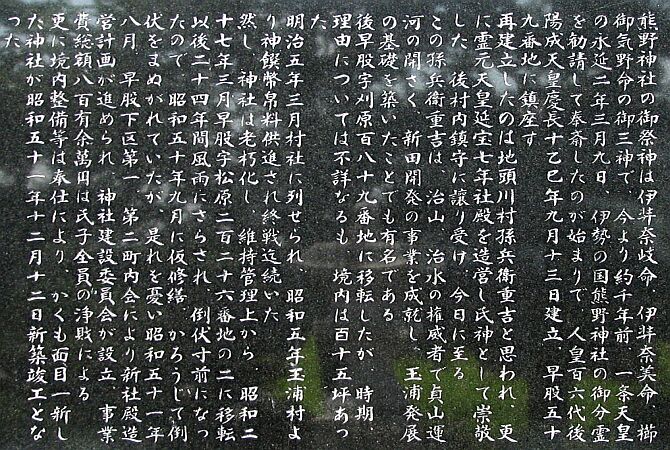 熊野神社の御祭神は伊弉奈岐命、伊弉奈美命、櫛
御気野命の御三神で、今より約千年前、一条天皇
の永延二年三月九日、伊勢の国熊野神社の御分霊
を勧請して奉斎したのが始まりで、人皇百六代後
陽成天皇慶長十乙巳年九月十三日建立、早股五十
九番地に鎮座す
再建立したのは地頭川村孫兵衛重吉と思われ、更
に霊元天皇延宝七年社殿を造営し氏神として崇敬
した、後村内鎮守に譲り受け、今日に至る
この孫兵衛重吉は、治山、治水の権威者で貞山運
河の開さく、新田開発の事業を成就し、玉浦発展
の基礎を築いたことでも有名である
後早股字刈原百八十九番地に移転したが、時期
理由については不詳なるも、境内は百十五坪あっ
た
明治五年三月村社に列せられ、昭和五年玉浦村よ
り神饌幣帛料供進され終戦迄続いた
然し、神社は老朽化し、維持管理上から、昭和二
十七年三月早股字松原二百二十六番地の二に移転
以後二十四年間風雨にさらされ、倒伏寸前になっ
たので、昭和五十年九月に仮修繕、かろうじて倒
伏をまぬがれていたが、是れを憂い昭和五十一年
八月、早股下区第一、第二町内会により新社殿造
営計画が進められ、神社建設委員会が設立、事業
費総額八百有余萬円は氏子全員の浄財による
更に境内整備等は奉仕により、かくも面目一新し
た神社が昭和五十一年十二月十二日新築竣工とな
った